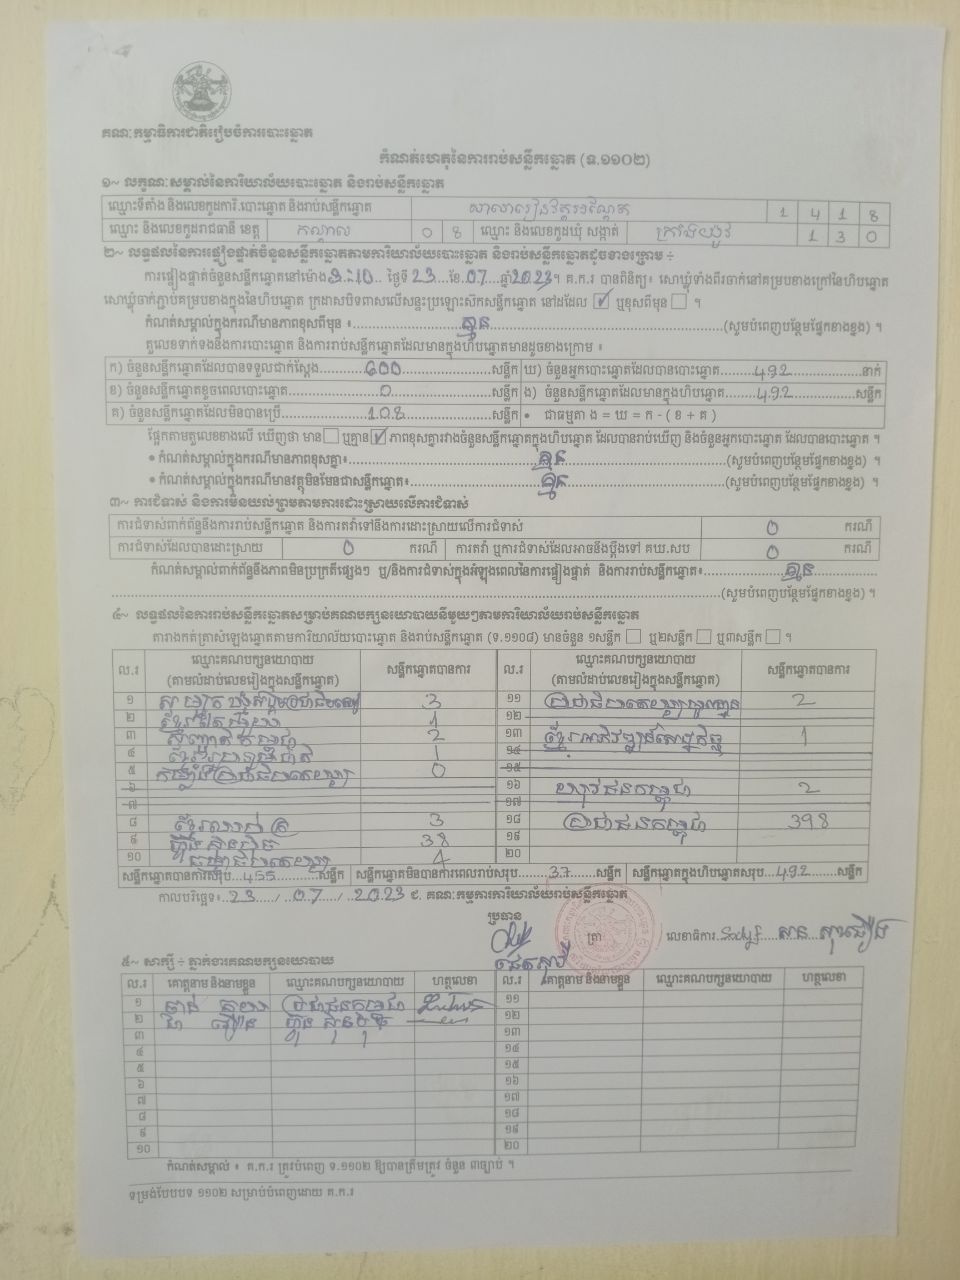 គណៈកម្មាធិការជាតិរៀបចំការបោះឆ្នោត
កំណត់ហេតុនៃការរាប់សន្លឹកឆ្នោត (ទ.១១០២)
១~ លក្ខណៈសម្គាល់នៃការិយាល័យបោះឆ្នោត និងរាប់សន្លឹកឆ្នោត
ឈ្មោះទីតាំង និងលេខកូដការិ.បោះឆ្នោត និងរាប់សន្លឹកឆ្នោត 1 4 1 8
ឈ្មោះ និងលេខកូដរាជធានី ខេត្ត កណ្តាល 0 8 ឈ្មោះ និងលេខកូដឃុំ សង្កាត់ ក្រាំងយ៉ូវ 1 3 0
២~ លទ្ធផលនៃការផ្ទៀងផ្ទាត់ចំនួនសន្លឹកឆ្នោតតាមការិយាល័យបោះឆ្នោត និងរាប់សន្លឹកឆ្នោតដូចខាងក្រោម ÷
ការផ្ទៀងផ្ទាត់ចំនួនសន្លឹកឆ្នោតនៅម៉ោង ថ្ងៃទី 23 ខែ 07 ឆ្នាំ 2023។ គ.ក.រ បានពិនិត្យ៖ សោឃ្លុំទាំងពីរចាក់នៅគម្របខាងក្រៅនៃហិបឆ្នោត
សោឃ្លុំចាក់ភ្ជាប់គម្របខាងក្នុងនៃហិបឆ្នោត ក្រដាសបិទពាសលើសន្ទះប្រឡោះស៊កសន្លឹកឆ្នោត នៅដដែល ✓ ឬខុសពីមុន ។
កំណត់សម្គាល់ក្នុងករណីមានភាពខុសពីមុន ៖ គ្មាន (សូមបំពេញបន្ថែមផ្នែកខាងខ្នង) ។
តួលេខទាក់ទងនឹងការបោះឆ្នោត និងការរាប់សន្លឹកឆ្នោតដែលមានក្នុងហិបឆ្នោតមានដូចខាងក្រោម ៖
ក) ចំនួនសន្លឹកឆ្នោតដែលបានទទួលជាក់ស្តែង 600 សន្លឹក ឃ) ចំនួនអ្នកបោះឆ្នោតដែលបានបោះឆ្នោត 492 នាក់
ខ) ចំនួនសន្លឹកឆ្នោតខូចពេលបោះឆ្នោត 0 សន្លឹក ង) ចំនួនសន្លឹកឆ្នោតដែលមានក្នុងហិបឆ្នោត 492 សន្លឹក
គ) ចំនួនសន្លឹកឆ្នោតដែលមិនបានប្រើ 108 សន្លឹក • ជាធម្មតា ង = ឃ = ក - ( ខ + គ )
ផ្អែកតាមតួលេខខាងលើ ឃើញថា មាន ឬគ្មាន ✓ ភាពខុសគ្នារវាងចំនួនសន្លឹកឆ្នោតក្នុងហិបឆ្នោត ដែលបានរាប់ឃើញ និងចំនួនអ្នកបោះឆ្នោត ដែលបានបោះឆ្នោត ។
• កំណត់សម្គាល់ក្នុងករណីមានភាពខុសគ្នា៖ គ្មាន (សូមបំពេញបន្ថែមផ្នែកខាងខ្នង) ។
• កំណត់សម្គាល់ក្នុងករណីមានវត្ថុមិនមែនជាសន្លឹកឆ្នោត៖ គ្មាន (សូមបំពេញបន្ថែមផ្នែកខាងខ្នង) ។
៣~ ការជំទាស់ និងការមិនយល់ព្រមតាមការដោះស្រាយលើការជំទាស់
ការជំទាស់ពាក់ព័ន្ធនឹងការរាប់សន្លឹកឆ្នោត និងការតវ៉ាទៅនឹងការដោះស្រាយលើការជំទាស់ 0 ករណី
ការជំទាស់ដែលបានដោះស្រាយ 0 ករណី ការតវ៉ា ឬការជំទាស់ដែលអាចនឹងប្តឹងទៅ គឃ.សប 0 ករណី
កំណត់សម្គាល់ពាក់ព័ន្ធនឹងភាពមិនប្រក្រតីផ្សេងៗ ឬ/និងការជំទាស់ក្នុងអំឡុងពេលនៃការផ្ទៀងផ្ទាត់ និងការរាប់សន្លឹកឆ្នោត៖ គ្មាន
(សូមបំពេញបន្ថែមផ្នែកខាងខ្នង) ។
៤~ លទ្ធផលនៃការរាប់សន្លឹកឆ្នោតសម្រាប់គណបក្សនយោបាយនីមួយៗតាមការិយាល័យរាប់សន្លឹកឆ្នោត
តារាងកត់ត្រាសំឡេងឆ្នោតតាមការិយាល័យបោះឆ្នោត និងរាប់សន្លឹកឆ្នោត (ទ.១១០៨) មានចំនួន ១សន្លឹក ឬ២សន្លឹក ឬ៣សន្លឹក ។
ល.រ ឈ្មោះគណបក្សនយោបាយ (តាមលំដាប់លេខរៀងក្នុងសន្លឹកឆ្នោត) សន្លឹកឆ្នោតបានការ ល.រ ឈ្មោះគណបក្សនយោបាយ (តាមលំដាប់លេខរៀងក្នុងសន្លឹកឆ្នោត) សន្លឹកឆ្នោតបានការ
១ 3 ១១ 2
២ 1 ១២
៣ 2 ១៣ ខ្មែរអភិវឌ្ឍន៍សេដ្ឋកិច្ច 1
៤ 1 ១៤
៥ 0 ១៥
៦ ១៦ យុវជនកម្ពុជា 2
៧ ១៧
៨ 3 ១៨ ប្រជាជនកម្ពុជា 398
៩ ហ្វ៊ុនស៊ិនប៉ិច 38 ១៩
១០ 4 ២០
សន្លឹកឆ្នោតបានការសរុប 455 សន្លឹក សន្លឹកឆ្នោតមិនបានការពេលរាប់សរុប 37 សន្លឹក សន្លឹកឆ្នោតក្នុងហិបឆ្នោតសរុប 492 សន្លឹក
កាលបរិច្ឆេទ÷ 23 / 07 / 2023 ជ. គណៈកម្មការការិយាល័យរាប់សន្លឹកឆ្នោត
ប្រធាន
ត្រា លេខាធិការ
៥~ សាក្សី ÷ ភ្នាក់ងារគណបក្សនយោបាយ
ល.រ គោត្តនាម និងនាមខ្លួន ឈ្មោះគណបក្សនយោបាយ ហត្ថលេខា ល.រ គោត្តនាម និងនាមខ្លួន ឈ្មោះគណបក្សនយោបាយ ហត្ថលេខា
១ ប្រជាជនកម្ពុជា ១១
២ ហ្វ៊ុនស៊ិនប៉ិច ១២
៣ ១៣
៤ ១៤
៥ ១៥
៦ ១៦
៧ ១៧
៨ ១៨
៩ ១៩
១០ ២០
កំណត់សម្គាល់ ៖ គ.ក.រ ត្រូវបំពេញ ទ.១១០២ ឱ្យបានត្រឹមត្រូវ ចំនួន ៣ច្បាប់ ។
ទម្រង់បែបបទ ១១០២ សម្រាប់បំពេញដោយ គ.ក.រ